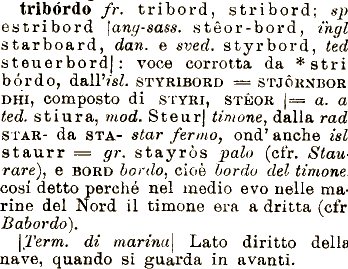 tribórdo fr. tribord, stribord; sp
estribord [ang-sass. stêor-bord, ingl
starboard, dan. e sved. styrbord, ted
steuerbord]: voce corrotta da * stri
bórdo, dall'isl. STYRIBORD = STJÔRNBOR
DHI, composto di STYRI, STÉOR [= a. a
ted. stiura, mod. Steur] timone, dalla rad
STAR- da STA- star fermo, ond'anche isl
staurr = gr. stayròs palo (cfr. Stau-
rare), e BORD bordo, cioè bordo del timone
cosí detto perché nel medio evo nelle ma-
rine del Nord il timone era a dritta (cfr
Babordo).
[Term. di marina] Lato diritto della
nave, quando si guarda in avanti.